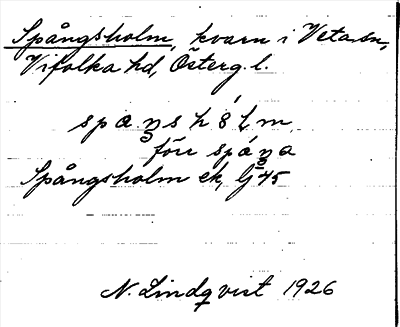 Spångsholm, kvarn i Veta sn,
Vifolka hd, Österg. l.
spaŋshólm
förr spáŋa
Spångsholm ek, lj 45
N. Lindqvist 1926